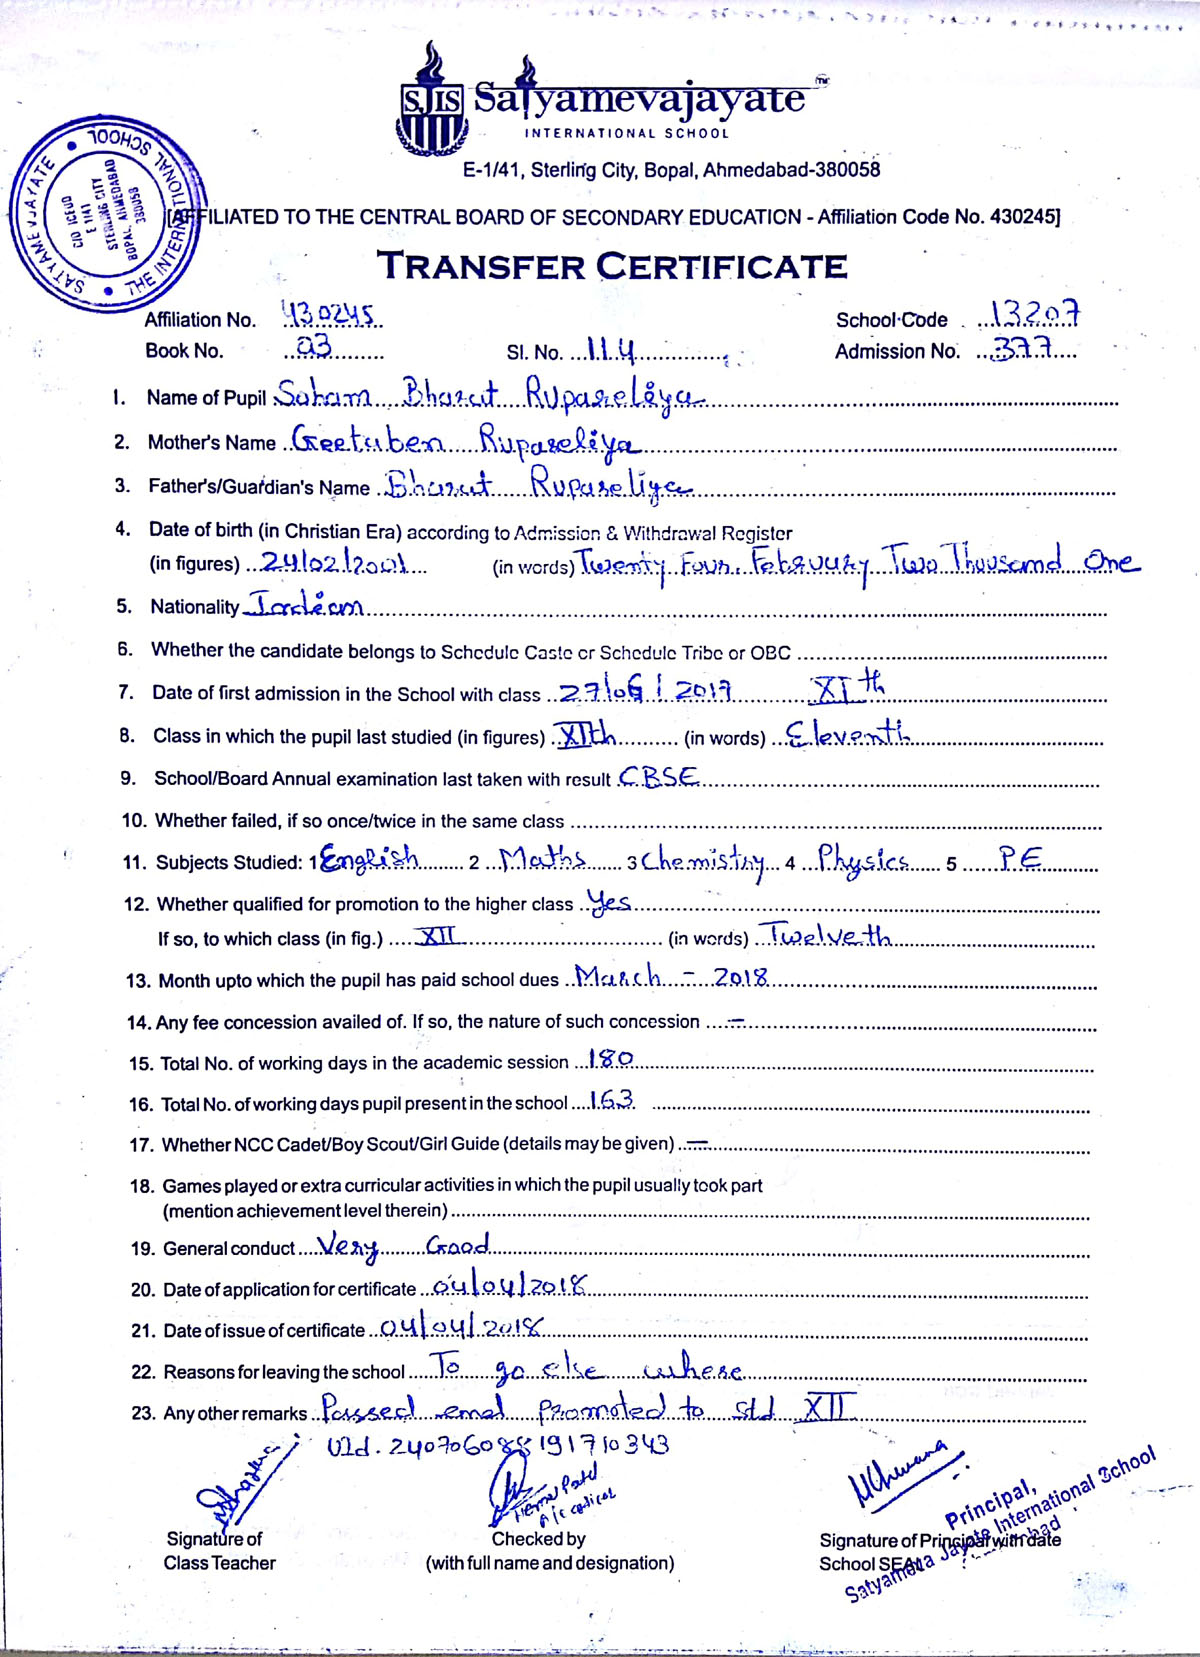 SJIS Satyamevajayate TM
INTERNATIONAL SCHOOL
E-1/41, Sterling City, Bopal, Ahmedabad-380058
SATYAMEVJAYATE • THE INTERNATIONAL SCHOOL •
C/O ICEUD
E 1/41
STERLING CITY
BOPAL, AHMEDABAD
380058
[AFFILIATED TO THE CENTRAL BOARD OF SECONDARY EDUCATION - Affiliation Code No. 430245]
TRANSFER CERTIFICATE
Affiliation No. 430245 School Code 13207
Book No. 03 Sl. No. 114 Admission No. 377
1. Name of Pupil Soham Bharat Rupareliya
2. Mother's Name Geetaben Rupareliya
3. Father's/Guardian's Name Bharat Rupareliya
4. Date of birth (in Christian Era) according to Admission & Withdrawal Register
(in figures) 24/02/2001 (in words) Twenty Four February Two Thousand One
5. Nationality Indian
6. Whether the candidate belongs to Schedule Caste or Schedule Tribe or OBC
7. Date of first admission in the School with class 27/06/2017 XIth
8. Class in which the pupil last studied (in figures) XIth (in words) Eleventh
9. School/Board Annual examination last taken with result CBSE
10. Whether failed, if so once/twice in the same class
11. Subjects Studied: 1 English 2 Maths 3 Chemistry 4 Physics 5 PE
12. Whether qualified for promotion to the higher class Yes
If so, to which class (in fig.) XII (in words) Twelveth
13. Month upto which the pupil has paid school dues March - 2018
14. Any fee concession availed of. If so, the nature of such concession —
15. Total No. of working days in the academic session 180
16. Total No. of working days pupil present in the school 163
17. Whether NCC Cadet/Boy Scout/Girl Guide (details may be given) —
18. Games played or extra curricular activities in which the pupil usually took part
(mention achievement level therein)
19. General conduct Very Good
20. Date of application for certificate 04/04/2018
21. Date of issue of certificate 04/04/2018
22. Reasons for leaving the school To go else where
23. Any other remarks Passed and Promoted to Std XII
UId. 240706088191710343
Signature of Checked by Signature of Principal with date
Class Teacher (with full name and designation) School SEAL
Principal,
Satyameva Jayate International School